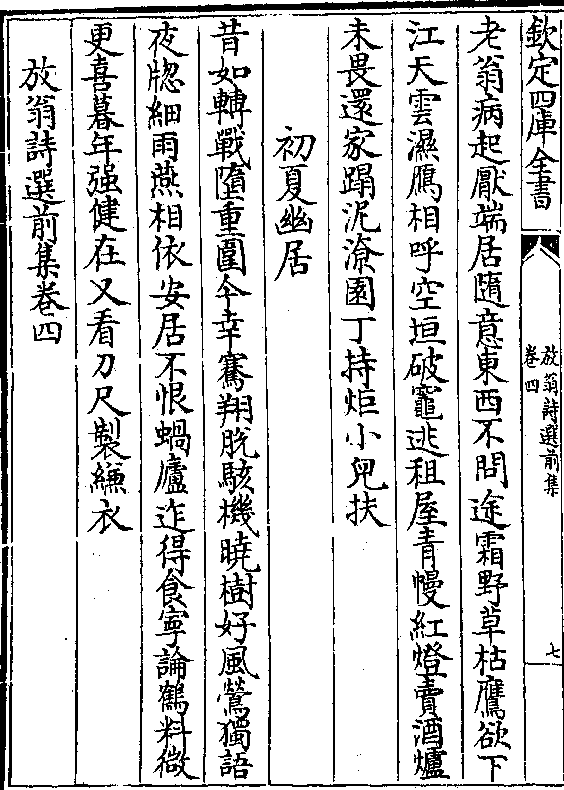 欽定四庫全書
放翁詩選前集
卷四
七
老翁病起厭端居隨意東西不問途霜野草枯鷹欲下
江天雲濕鴈相呼空垣破竈逃租屋青幔紅燈賣酒爐
未畏還家蹋泥潦園丁持炬小兒扶
初夏幽居
昔如轉戰墮重圍今幸騫翔脫駭機曉樹好風鶯獨語
夜牎細雨燕相依安居不恨蝸廬迮得食寧論鶴料微
更喜暮年强健在又看刀尺製縑衣
放翁詩選前集卷四